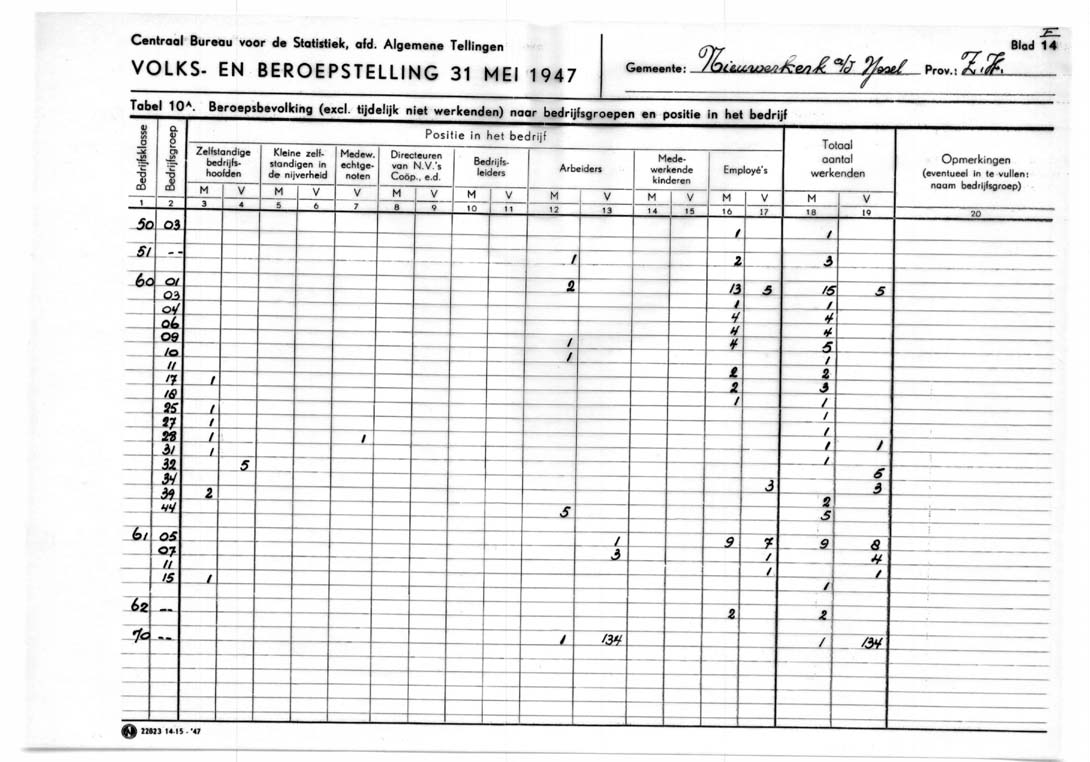 Centraal Bureau voor de Statistiek, afd. Algemene Tellingen
VOLKS- EN BEROEPSTELLING 31 MEI 1947
Gemeente: Nieuwerkerk a/d IJssel Prov.: Z.H.
E
Blad 14
Tabel 10^. Beroepsbevolking (excl. tijdelijk niet werkenden) naar bedrijfsgroepen en positie in het bedrijf
Bedrijfsklasse Bedrijfsgroep Positie in het bedrijf Totaal aantal werkenden Opmerkingen (eventueel in te vullen: naam bedrijfsgroep)
Zelfstandige bedrijfs-hoofden Kleine zelf-standigen in de nijverheid Medew. echtge-noten Directeuren van N.V.'s Coöp., e.d. Bedrijfs-leiders Arbeiders Mede-werkende kinderen Employé's
M V M V V M V M V M V M V M V M V
1 2 3 4 5 6 7 8 9 10 11 12 13 14 15 16 17 18 19 20
50 03 1 1
51 -- 1 2 3
60 01 2 13 5 15 5
03 1 1
04 4 4
06 4 4
09 1 4 5
10 1 1
11 2 2
17 1 2 3
18 1 1
25 1 1
27 1 1
28 1 1 1 1
31 1 1
32 5 5
34 3 3
39 2 2
44 5 5
61 05 1 9 7 9 8
07 3 1 4
11 1 1
15 1 1
62 -- 2 2
70 -- 1 134 1 134
22823 14-15 - '47